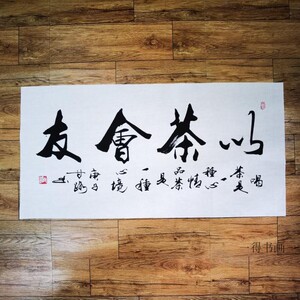 以茶會友
喝茶是一種心情品茶是一種心境
得书画